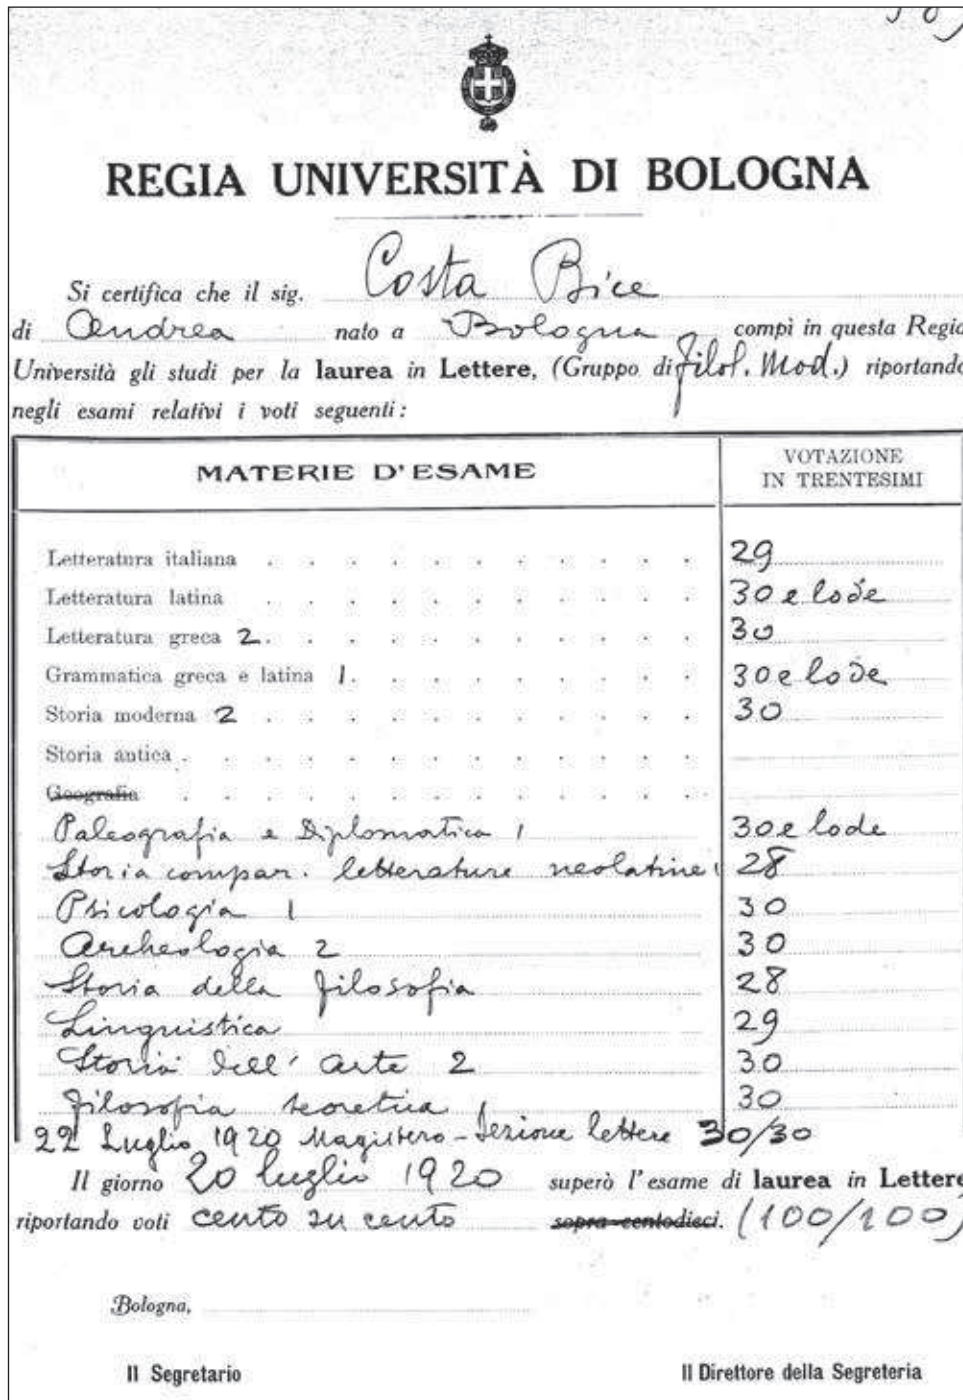 REGIA UNIVERSITÀ DI BOLOGNA
Si certifica che il sig. Costa Bice
di Andrea nato a Bologna compì in questa Regia
Università gli studi per la laurea in Lettere, (Gruppo di filol. Mod.) riportando
negli esami relativi i voti seguenti:
MATERIE D'ESAME VOTAZIONE
IN TRENTESIMI
Letteratura italiana 29
Letteratura latina 30 e lode
Letteratura greca 2 30
Grammatica greca e latina 1 30 e lode
Storia moderna 2 30
Storia antica
Geografia
Paleografia e Diplomatica 1 30 e lode
Storia compar. letterature neolatine 1 28
Psicologia 1 30
Archeologia 2 30
Storia della filosofia 28
Linguistica 29
Storia dell'arte 2 30
Filosofia teoretica 1 30
22 Luglio 1920 Magistero - Sezione lettere 30/30
Il giorno 20 luglio 1920 superò l'esame di laurea in Lettere
riportando voti cento su cento sopra centodieci. (100/100)
Bologna,
Il Segretario Il Direttore della Segreteria